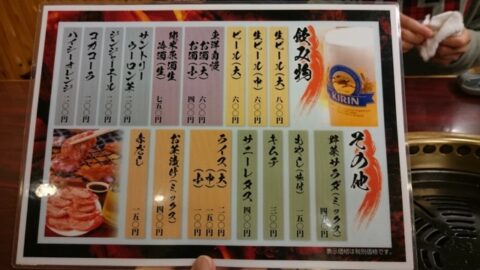 飲み物
生ビール(大) 八〇〇円
生ビール(中) 六〇〇円
ビール(大) 六〇〇円
お酒(大) 六〇〇円
お酒(小) 四〇〇円
梅酒(生) 七五〇円
サントリー
ウーロン茶 二〇〇円
ジンジャーエール 二〇〇円
コカコーラ 二〇〇円
ハイシーオレンジ 二〇〇円
KIRIN
その他
野菜サラダ(ミックス) 四〇〇
もやし(味付) 一五〇
キムチ 三〇〇
サニーレタス 四〇〇
ライス(大) 二〇〇
(中) 一五〇
(小) 一〇〇
お茶漬け(ミックス) 四〇〇
赤だし 一五〇
表示価格は税別価格です。